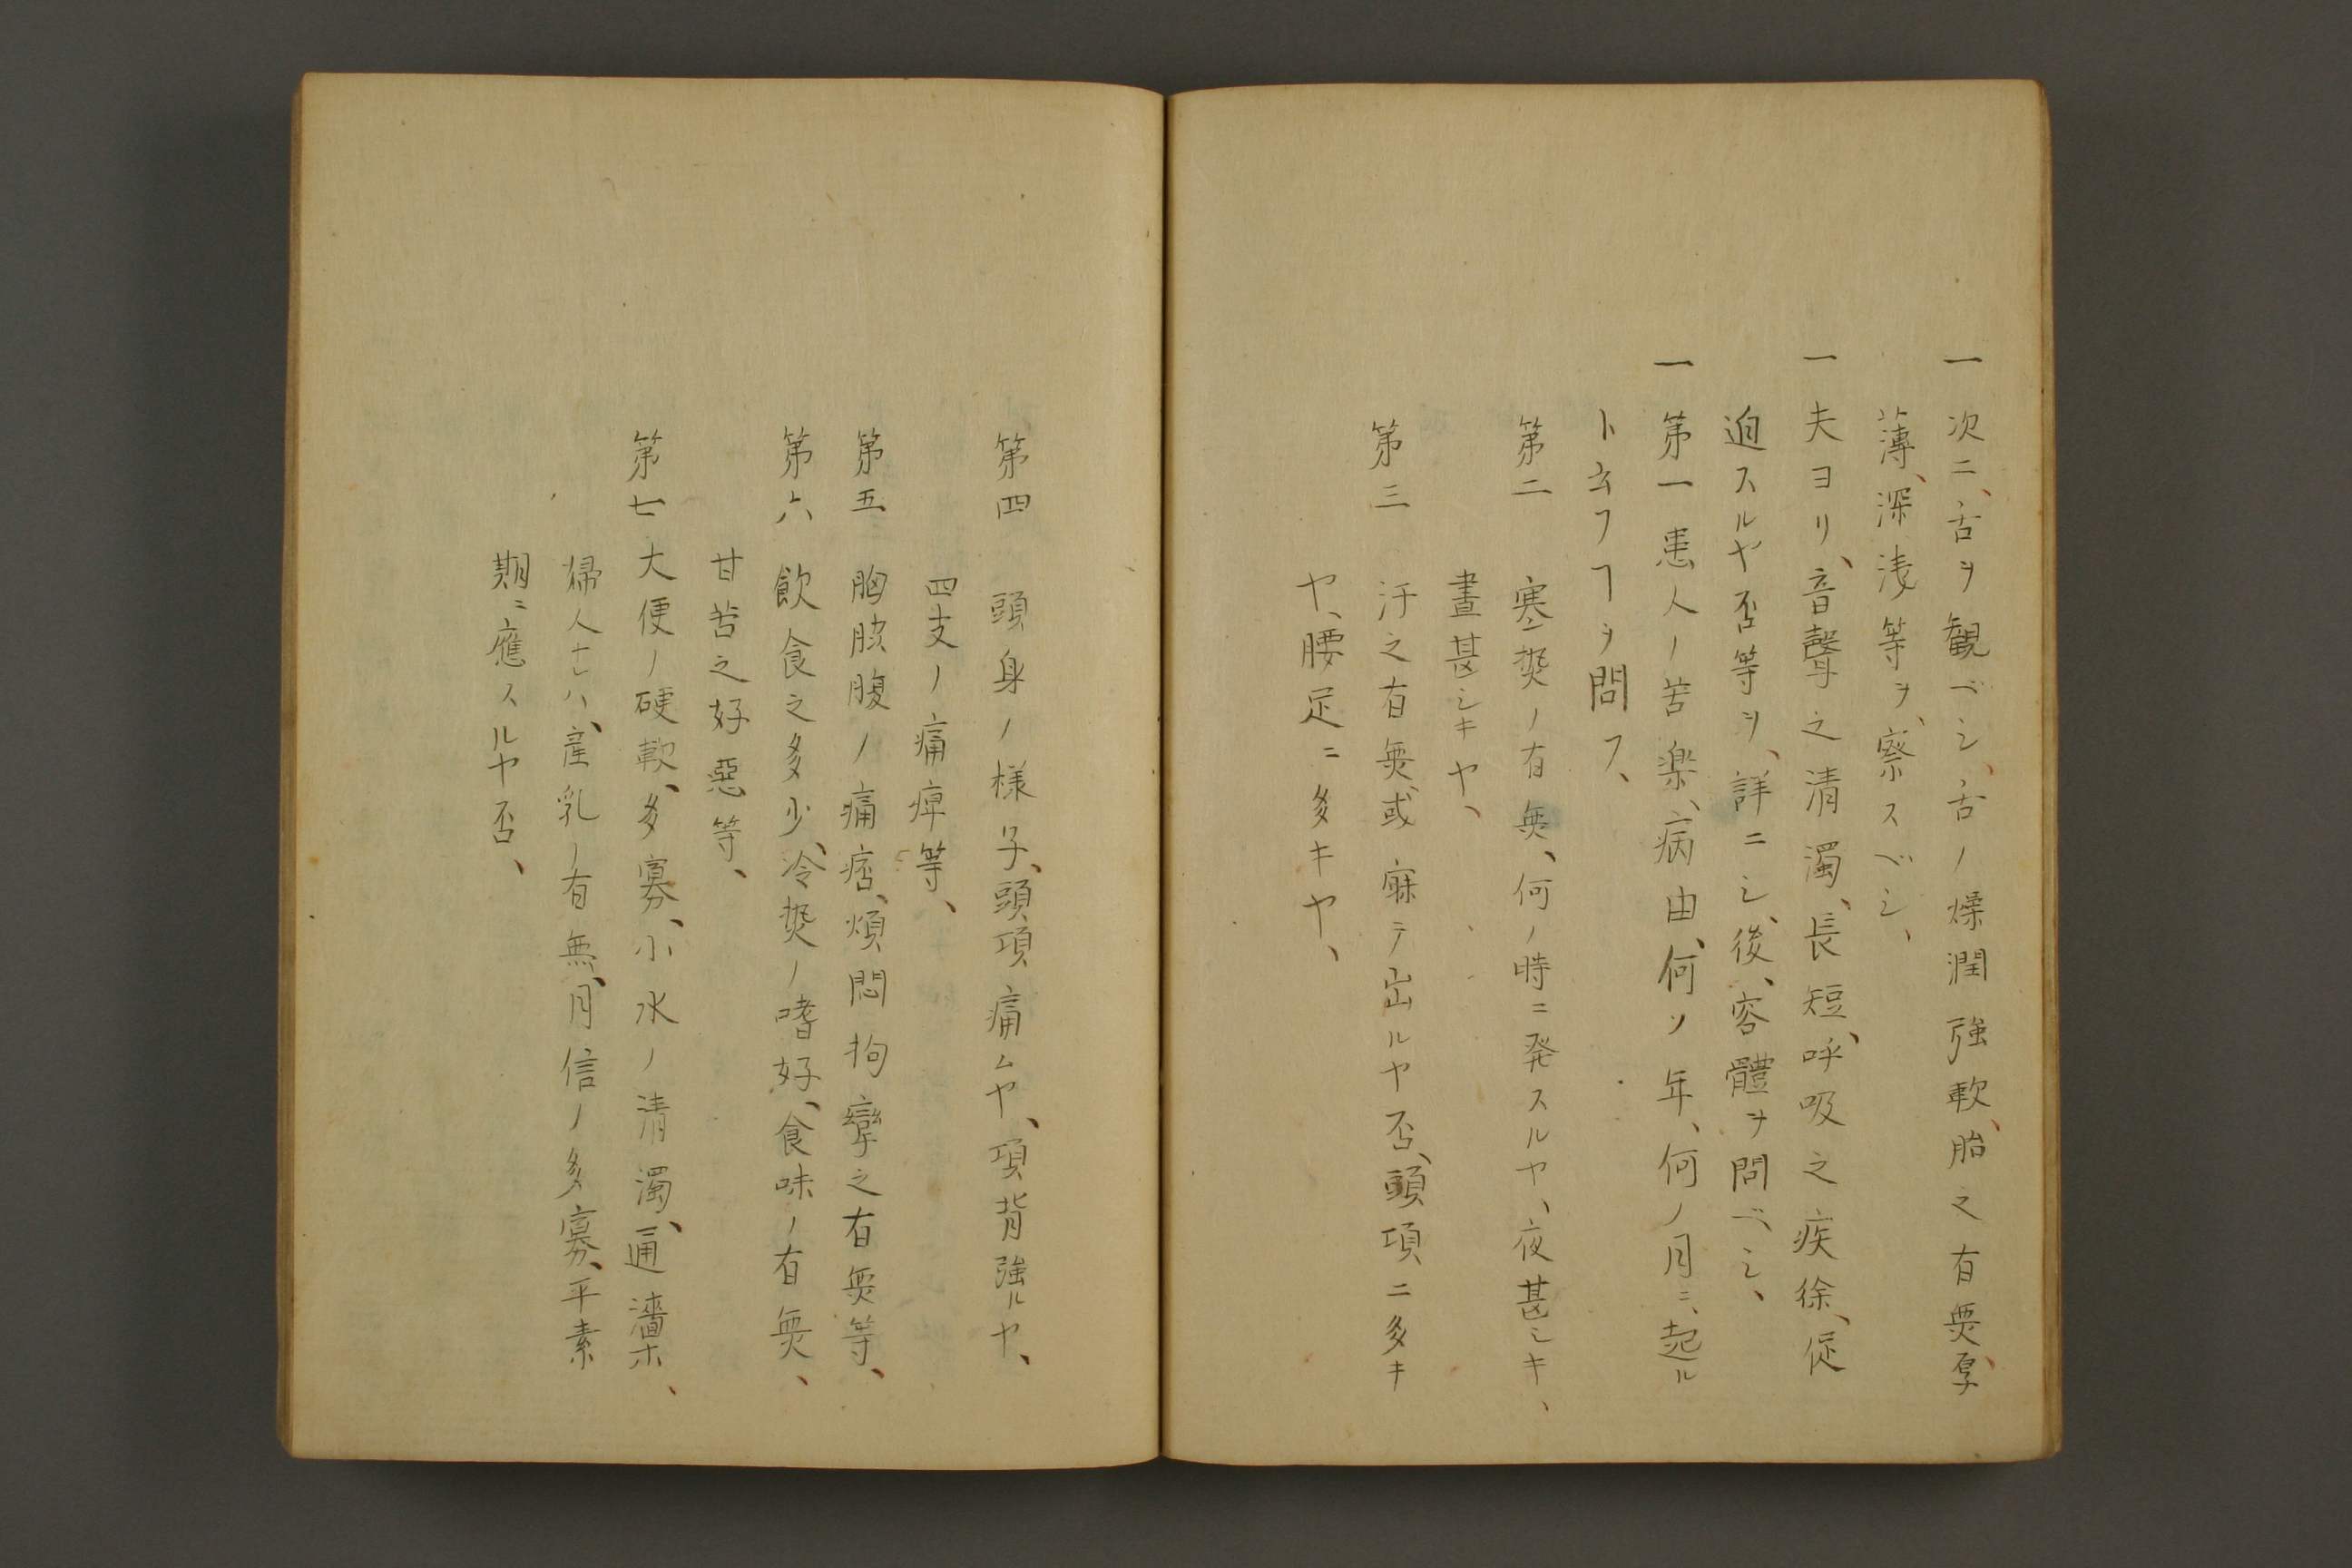 一次ニ、舌ヲ観ベシ、舌ノ燥潤強軟、胎之有無、厚
薄、深浅等ヲ、察スベシ、
一夫ヨリ、音聲之清濁、長短、呼吸之疾徐、促
迫スルヤ否等ヲ、詳ニシ、後、容體ヲ問ベシ、
一第一患人ノ苦楽、病由、何ソ年、何ノ月ニ、起ル
ト云フヿヲ問フ、
第二 寒熱ノ有無、何ノ時ニ発スルヤ、夜甚シキ、
晝甚シキヤ、
第三 汗之有無、或寐テ出ルヤ否、頭項ニ多キ
ヤ、腰足ニ多キヤ、
第四 頭身ノ様子、頭項痛ムヤ、項背強ルヤ、
四支ノ痛痺等、
第五 胸肢腹ノ痛痞、煩悶拘攣之有無等、
第六 飲食之多少、冷熱ノ嗜好、食味ノ有無、
甘苦之好惡等、
第七 大便ノ硬軟、多寡、小水ノ清濁、通濇、
婦人ナレハ、産乳ノ有無、月信ノ多寡、平素
期ニ應スルヤ否、